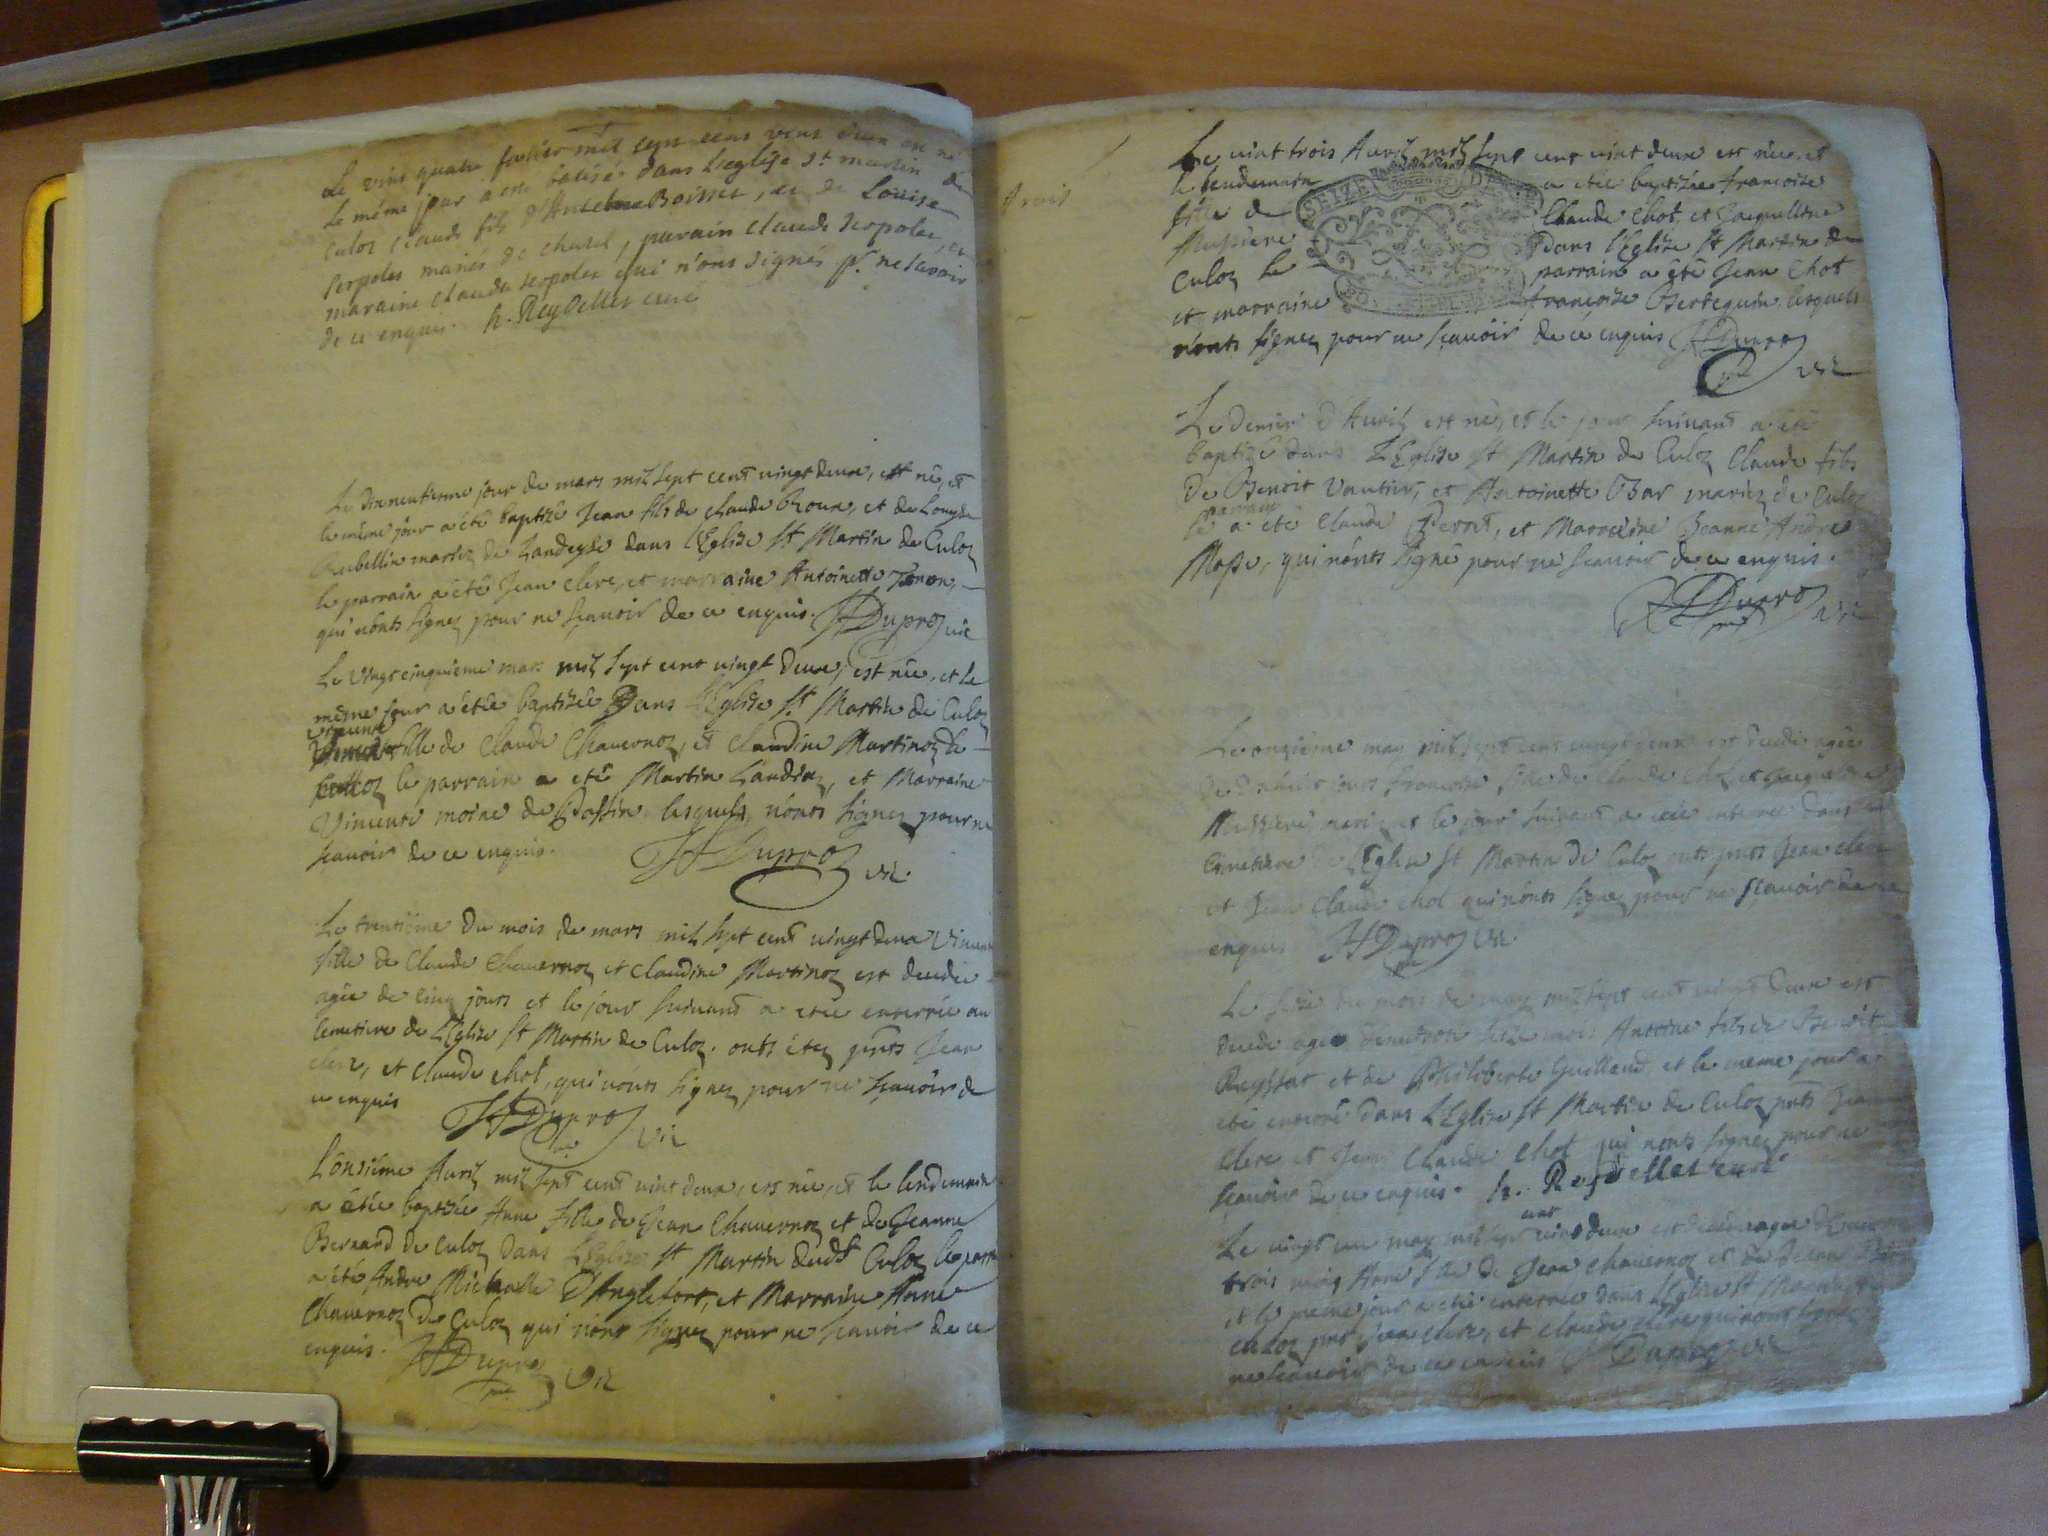 Le vint quatre fevrier mil sept cens vint deux est né
le même jour a esté batisé dans leglise St martin de
Culoz claude fils d'Antelme Boisset, et de Louise
serpolet mariés de chatel, parain claude serpolet, et
maraine clauda serpolet qui n'ont signés pr. ne scavoir
de ce enquis. h. Reydellet curé
Le Dixneufieme jour de mars mil sept cent vingt deux, est né, et
le même jour a été baptizé Jean fils de claude broux, et de Louyse
Rubellin mariez de Landeyse dans l'Eglise St Martin de Culoz
le parrain a été Jean clerc, et marraine Antoinette
qui n'onts signez pour ne sçavoir de ce enquis. Duproz vic
Le vingt cinquieme mars mil sept cent vingt deux, est née, et le
même jour a étée baptizée Dans l'Eglise St Martin de Culoz
vincente fille de Claude Chavernoz, et claudine Martinoz de
Culloz le parrain a été Martin Landraz, et Marraine
Vincente moine de lesquels n'onts signez pour ne
sçavoir de ce enquis. Duproz vic.
Le trentiéme du mois de mars mil sept cent vingt deux Vincente
fille de Claude Chavernoz et claudine Martinoz est decedée
agée de cinq jours et le jour suivant a etée enterrée au
Cemetiere de l'Eglise St Martin de Culoz. onts étez pnts Jean
clerc, et claude chot, qui n'onts signez pour ne sçavoir de
ce enquis Duproz vic
L'onsiéme Avril mil sept cent vint deux, est née, et le lendemain
a étée baptizée Anne fille de Jean Chavernoz et de Jeanne
Bernard de Culoz Dans l'Eglise St Martin dudt Culoz le parrain
a été Andre Michaelle D'Anglefort, et Marraine Anne
Chavernoz de Culoz qui n'ont signez pour ne sçavoir de ce
enquis. Duproz vic
trois
Le vint trois Avril mil sept cent vint deux est née, et
le lendemain a étée baptizée francoise
fille de Claude Chot et Jacqueline
Mussiere dans l'Eglise St Martin de
Culoz le parrain a été Jean Chot
et marraine francoise Berthequin lesquels
n'onts signez pour ne sçavoir de ce enquis Duproz
vic
SEIZE
Le Dernier d'Avril est né, et le jour suivant a été
baptizé dans l'Eglise St Martin de Culoz Claude fils
de Benoit Vautier, et Antoinette Bar mariez de Culoz
parrain
le a été Claude et Marraine Jeanne Andre
Masse, qui n'onts signé pour ne scavoir de ce enquis.
Duproz vic
Le onziéme may mil sept cent vingt deux est decedée agée
de dixhuit jours francoise fille de claude chot et Jacqueline
Mussiere mariez et le jour suivant a etée enterrée dans le
Cimetiere de l'Eglise St Martin de Culoz onts pnts Jean clerc
et Jean Claude chot qui n'onts signez pour ne sçavoir de ce
enquis Duproz vic.
Le seize du mois de may mil sept cent vingt deux est
decedé agé d'environ seize mois Antoine fils de Benoit
Reyssat et de Philiberte Guilland, et le même jour a
été enterré dans l'Eglise St Martin de Culoz pnts Jean
clerc et Jean Claude Chot qui nonts signez pour ne
scavoir de ce enquis. h. Reydellet curé
cent
Le vingt un may mil sept vint deux est decedée agée d'environ
trois mois Anne fille de Jean chavernoz et de Jeanne
et le meme jour a eté enterrée dans l'Eglise St Martin de
Culoz pnts Jean clerc, et claude qui n'onts signez
ne scavoir de ce enquis Duproz vic